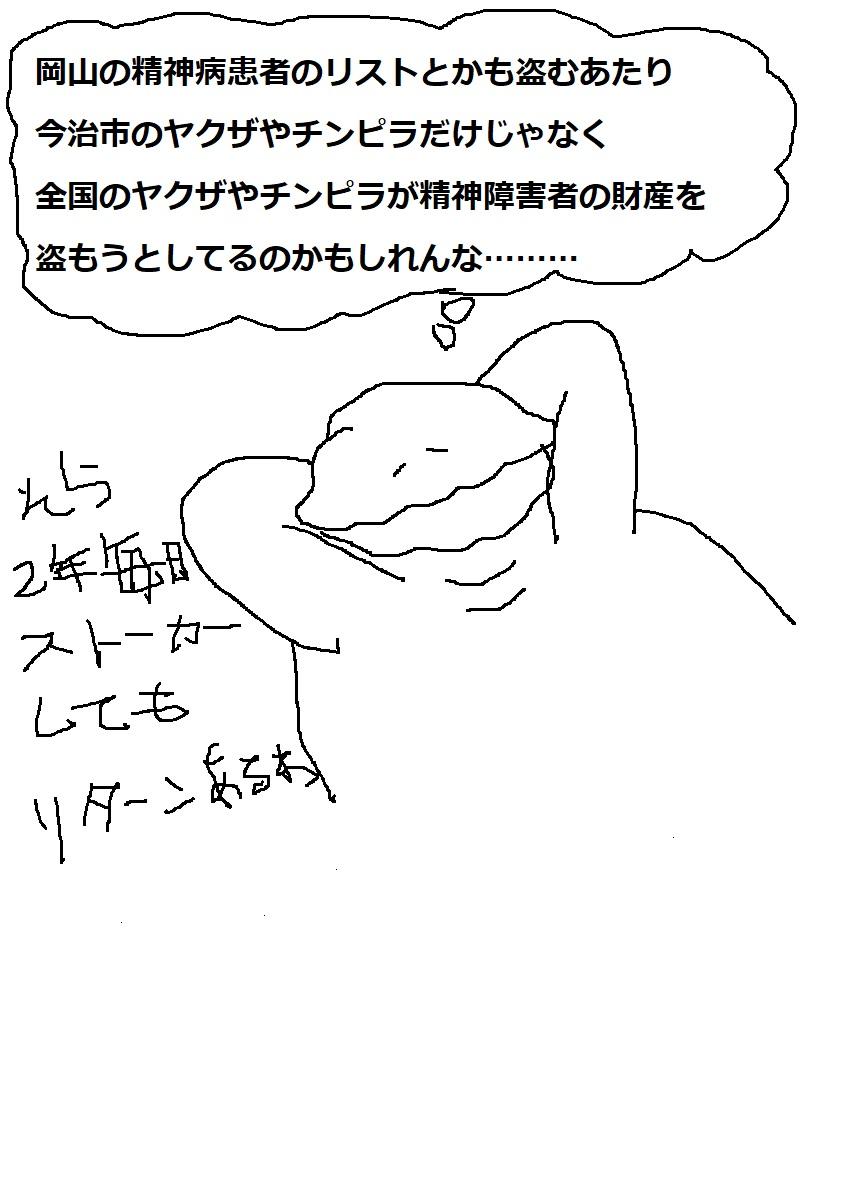 岡山の精神病患者のリストとかも盗むあたり
今治市のヤクザやチンピラだけじゃなく
全国のヤクザやチンピラが精神障害者の財産を
盗もうとしてるのかもしれんな………
2年毎日
ストーカー
しても
リターンあるわ